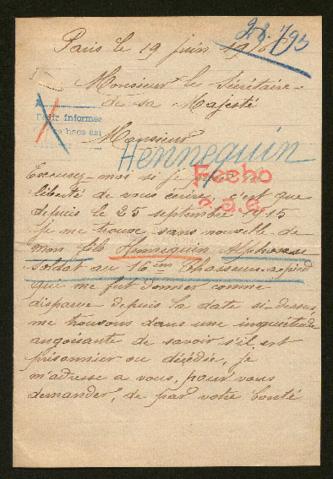 28.193
Paris le 19 juin 1916
Monsieur le Sécrétaire
de sa Majesté
Monsieur
Hennequin
Excusez-moi si je
Fecho
liberté de vous écrire c'est que
depuis le 25 septembre 1915
je me trouve sans nouvelle de
mon fils Hennequin Alphonse
soldat au 16em Chasseurs a pied
que me fut donner comme
disparu depuis la date si-dessus,
me trouvons dans une inquiétude
angoisante de savoir s'il est
prisonnier ou décédée, je
m'adresse a vous, pour vous
demander, de par votre bonté